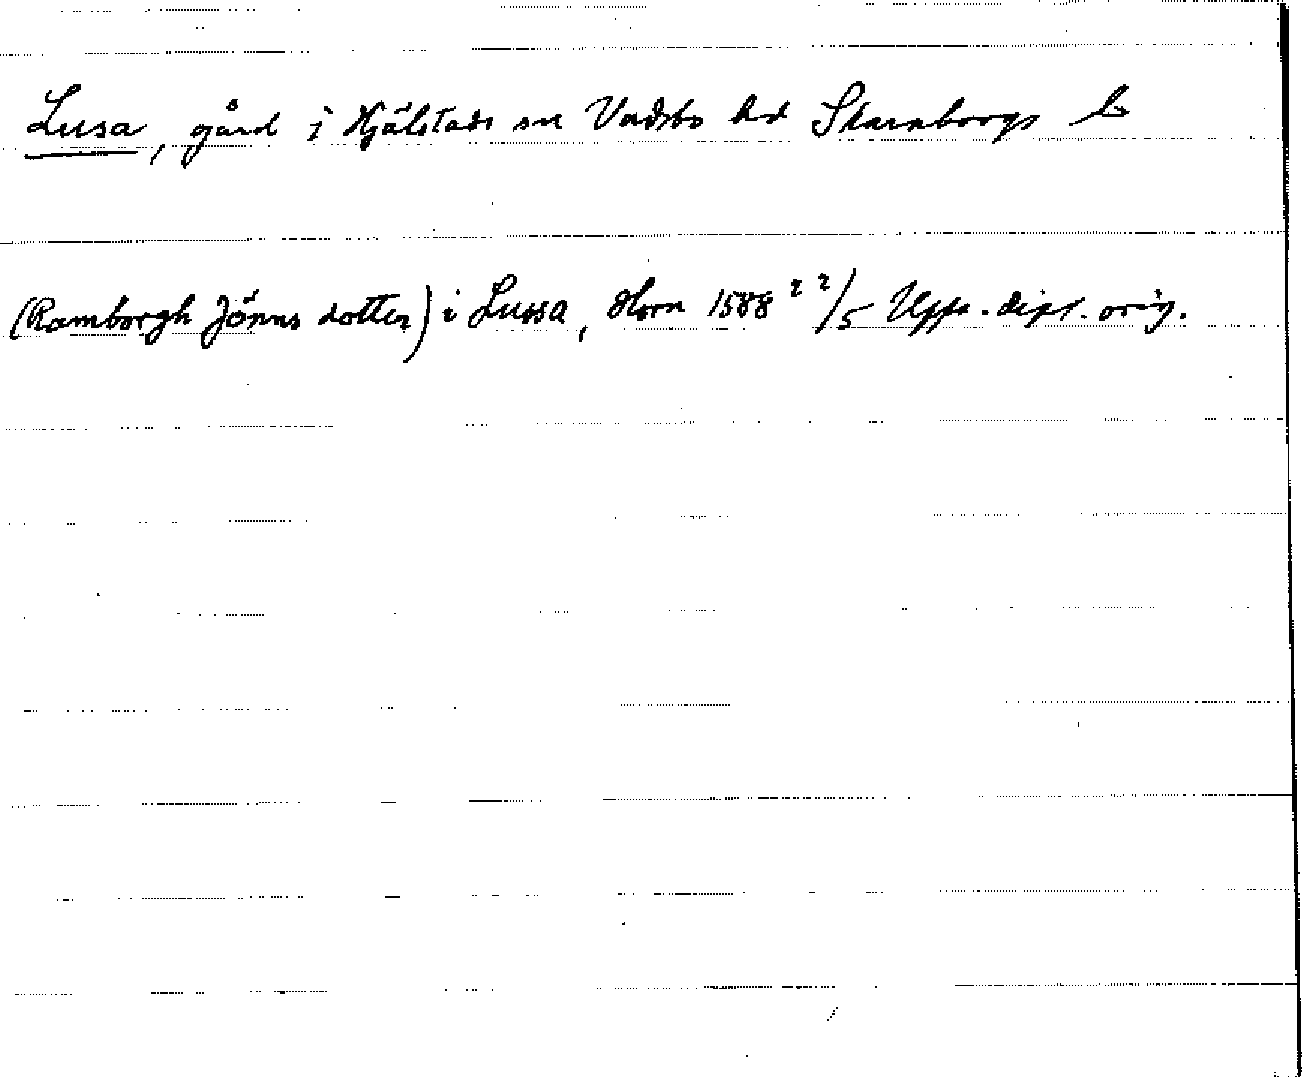 Lusa, gård i Hjälstads sn Vadsbo hd Skaraborgs l.
(Ramborgh Jönns dotter) i Lussa, Horn 1588 22/5 Upps. dipl. orig.